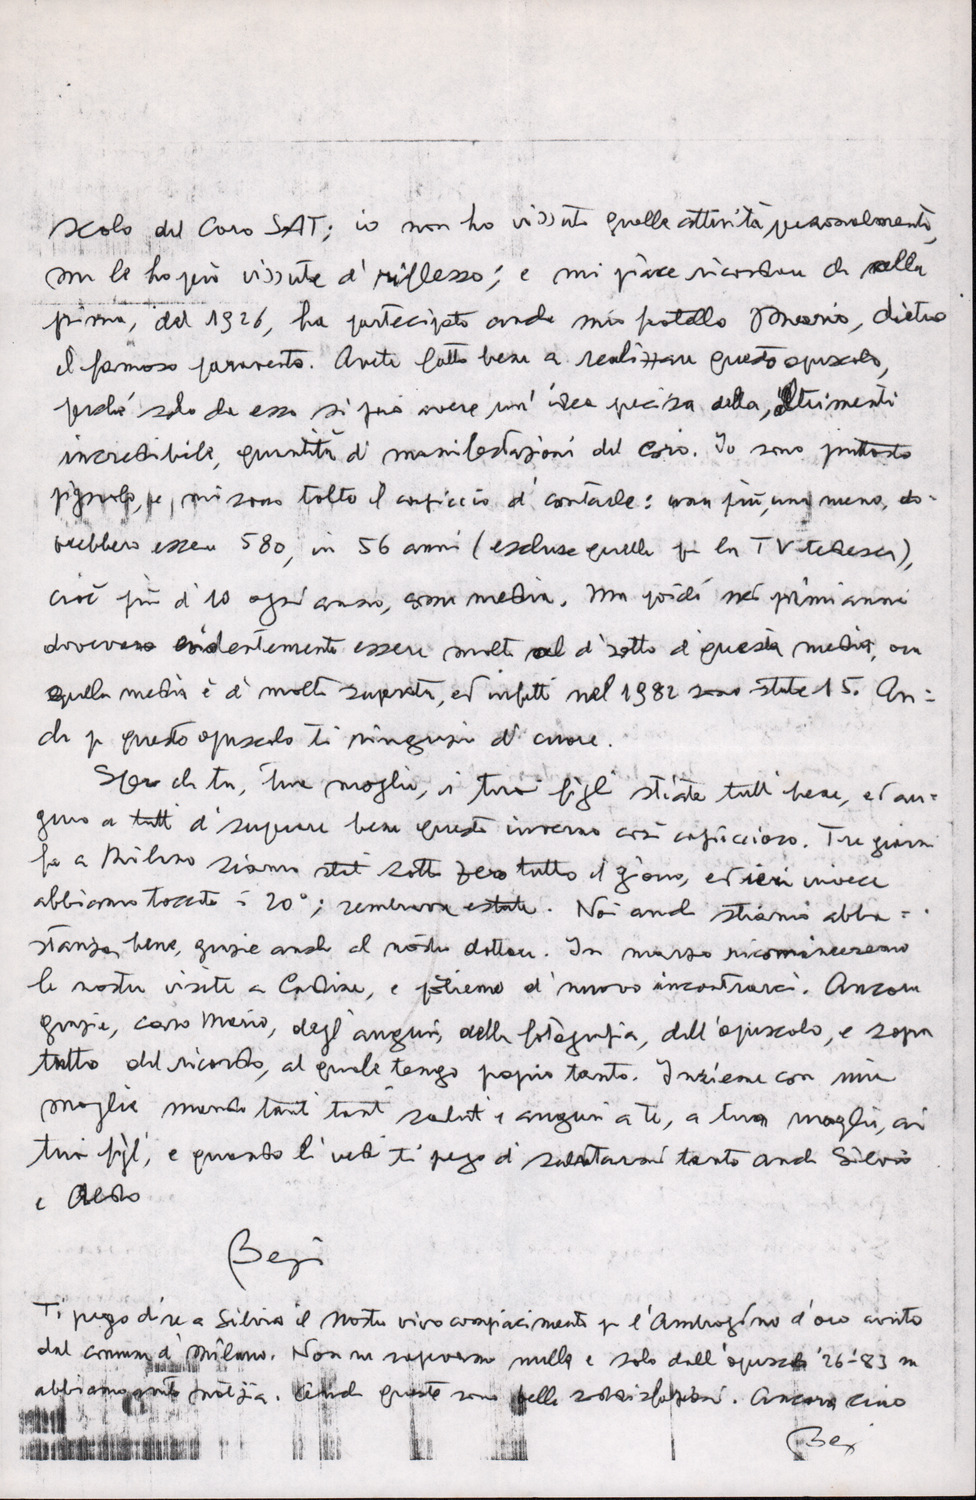 scolo del Coro SAT; io non ho vissuto quella attività personalmente,
ma le ho più vissute di riflesso; e mi piace ricordare che alla
prima, del 1926, ha partecipato anche mio fratello Mario, dietro
il famoso paravento. Avete fatto bene a realizzare questo opuscolo,
perché solo da esso si può avere un'idea precisa della, altrimenti
incredibile, quantità di manifestazioni del coro. Io sono piuttosto
pignolo, e mi sono tolto il capriccio di contarle: una più, una meno, do-
vrebbero essere 580, in 56 anni (escluse quelle per la TV tedesca),
cioè più di 10 ogni anno, come media. Ma poiché nei primi anni
dovevano evidentemente essere molte al di sotto di questa media, ora
quella media è di molto superata, ed infatti nel 1982 sono state 15. An=
che per questo opuscolo ti ringrazio di cuore.
Spero che tu, tua moglie, i tuoi figli stiate tutti bene, ed au=
guro a tutti di superare bene questo inverno così capriccioso. Tre giorni
fa a Milano siamo stati sotto zero tutto il giorno, ed ieri invece
abbiamo toccato i 20°; sembrava estate. Noi anche stiamo abba=
stanza bene, grazie anche al nostro dottore. In marzo ricominceremo
le nostre visite a Cadine, e potremo di nuovo incontrarci. Ancora
grazie, caro Mario, degli auguri, della fotografia, dell'opuscolo, e sopra
tutto del ricordo, al quale tengo proprio tanto. Insieme con mia
moglie mando tanti tanti saluti e auguri a te, a tua moglie, ai
tuoi figli, e quando li vedi ti prego di salutarmi tanto anche Silvio
e Aldo
Ti prego dire a Silvio il nostro vivo compiacimento per l'Ambrogino d'oro avuto
dal comune di Milano. Non ne sapevamo nulla e solo dall'opuscolo '26-'83 ne
abbiamo avuto notizia. Anche queste sono belle soddisfazioni. Ancora ciao